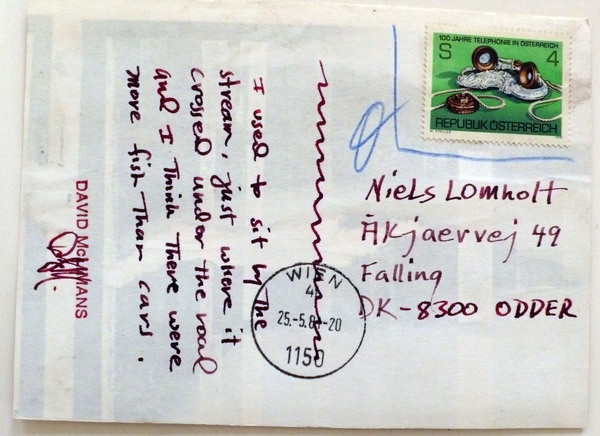 100 JAHRE TELEPHONIE IN ÖSTERREICH
S 4
REPUBLIK ÖSTERREICH
I used to sit by the
stream, just where it
crossed under the road
and I think there were
more fish than cars.
DAVID McLIMANS
Niels Lomholt
Åkjaervej 49
Falling
DK-8300 ODDER
WIEN
4
25.-5.81-20
1150